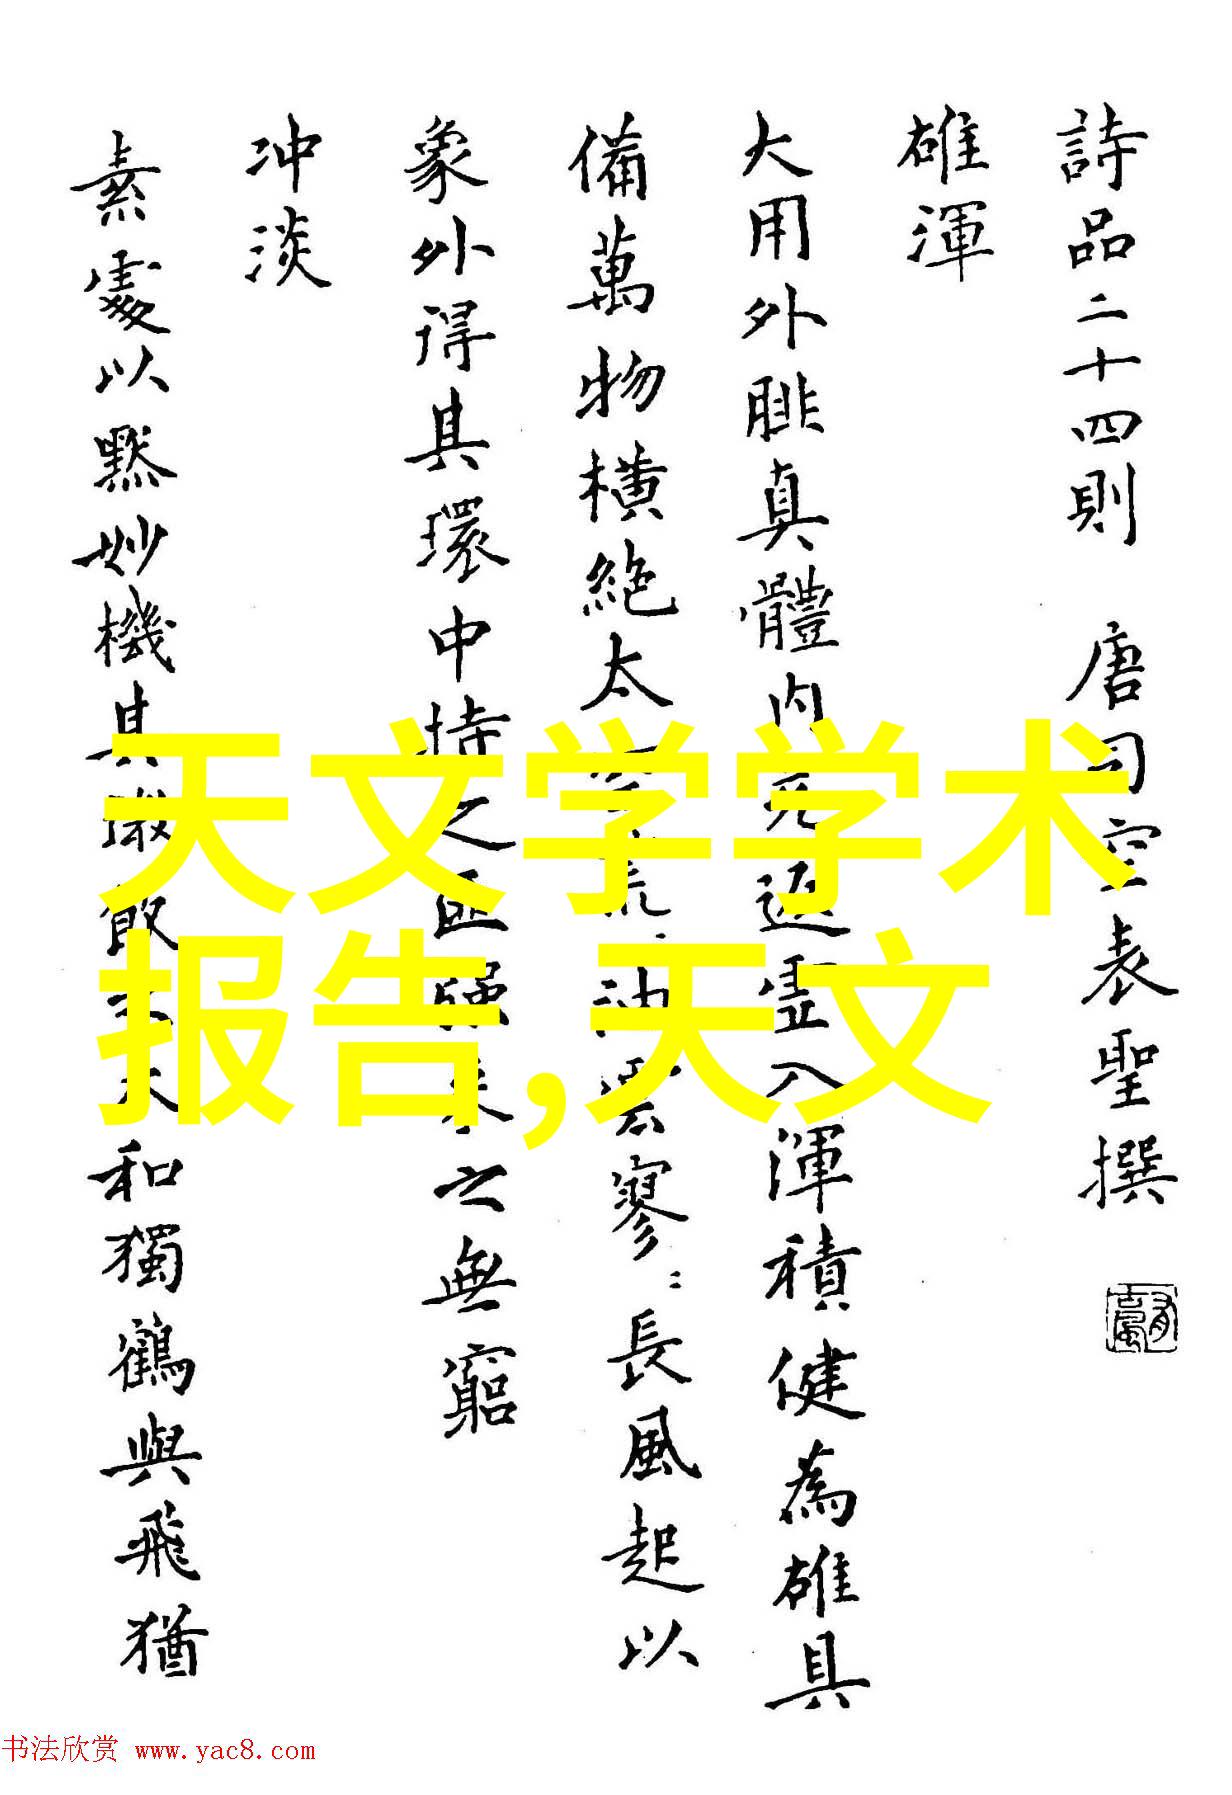 詩品二十四則 唐司空表聖撰
雄渾
大用外腓真體内充返虛入渾積健為雄具
備萬物橫絕太油雲寥〻長風起以
象外得其環中持之匪強來之無窮
沖淡
素處以默妙機其微飲太和獨鶴與飛猶
天文学学术
报告,天文
书法欣赏 www.yac8.com